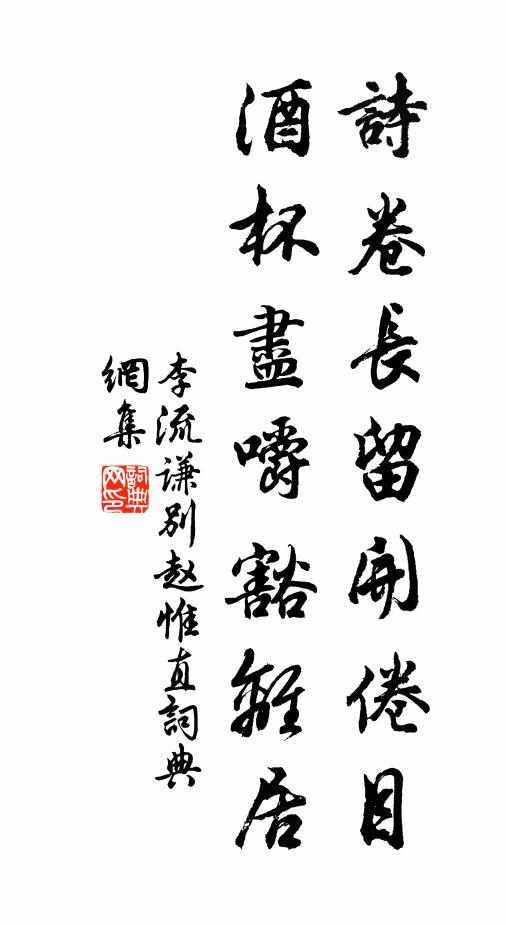 詩卷長留開倦目
酒杯盡嚼豁離居
李流謙別赵惟直詞典
網集
詞典
网印